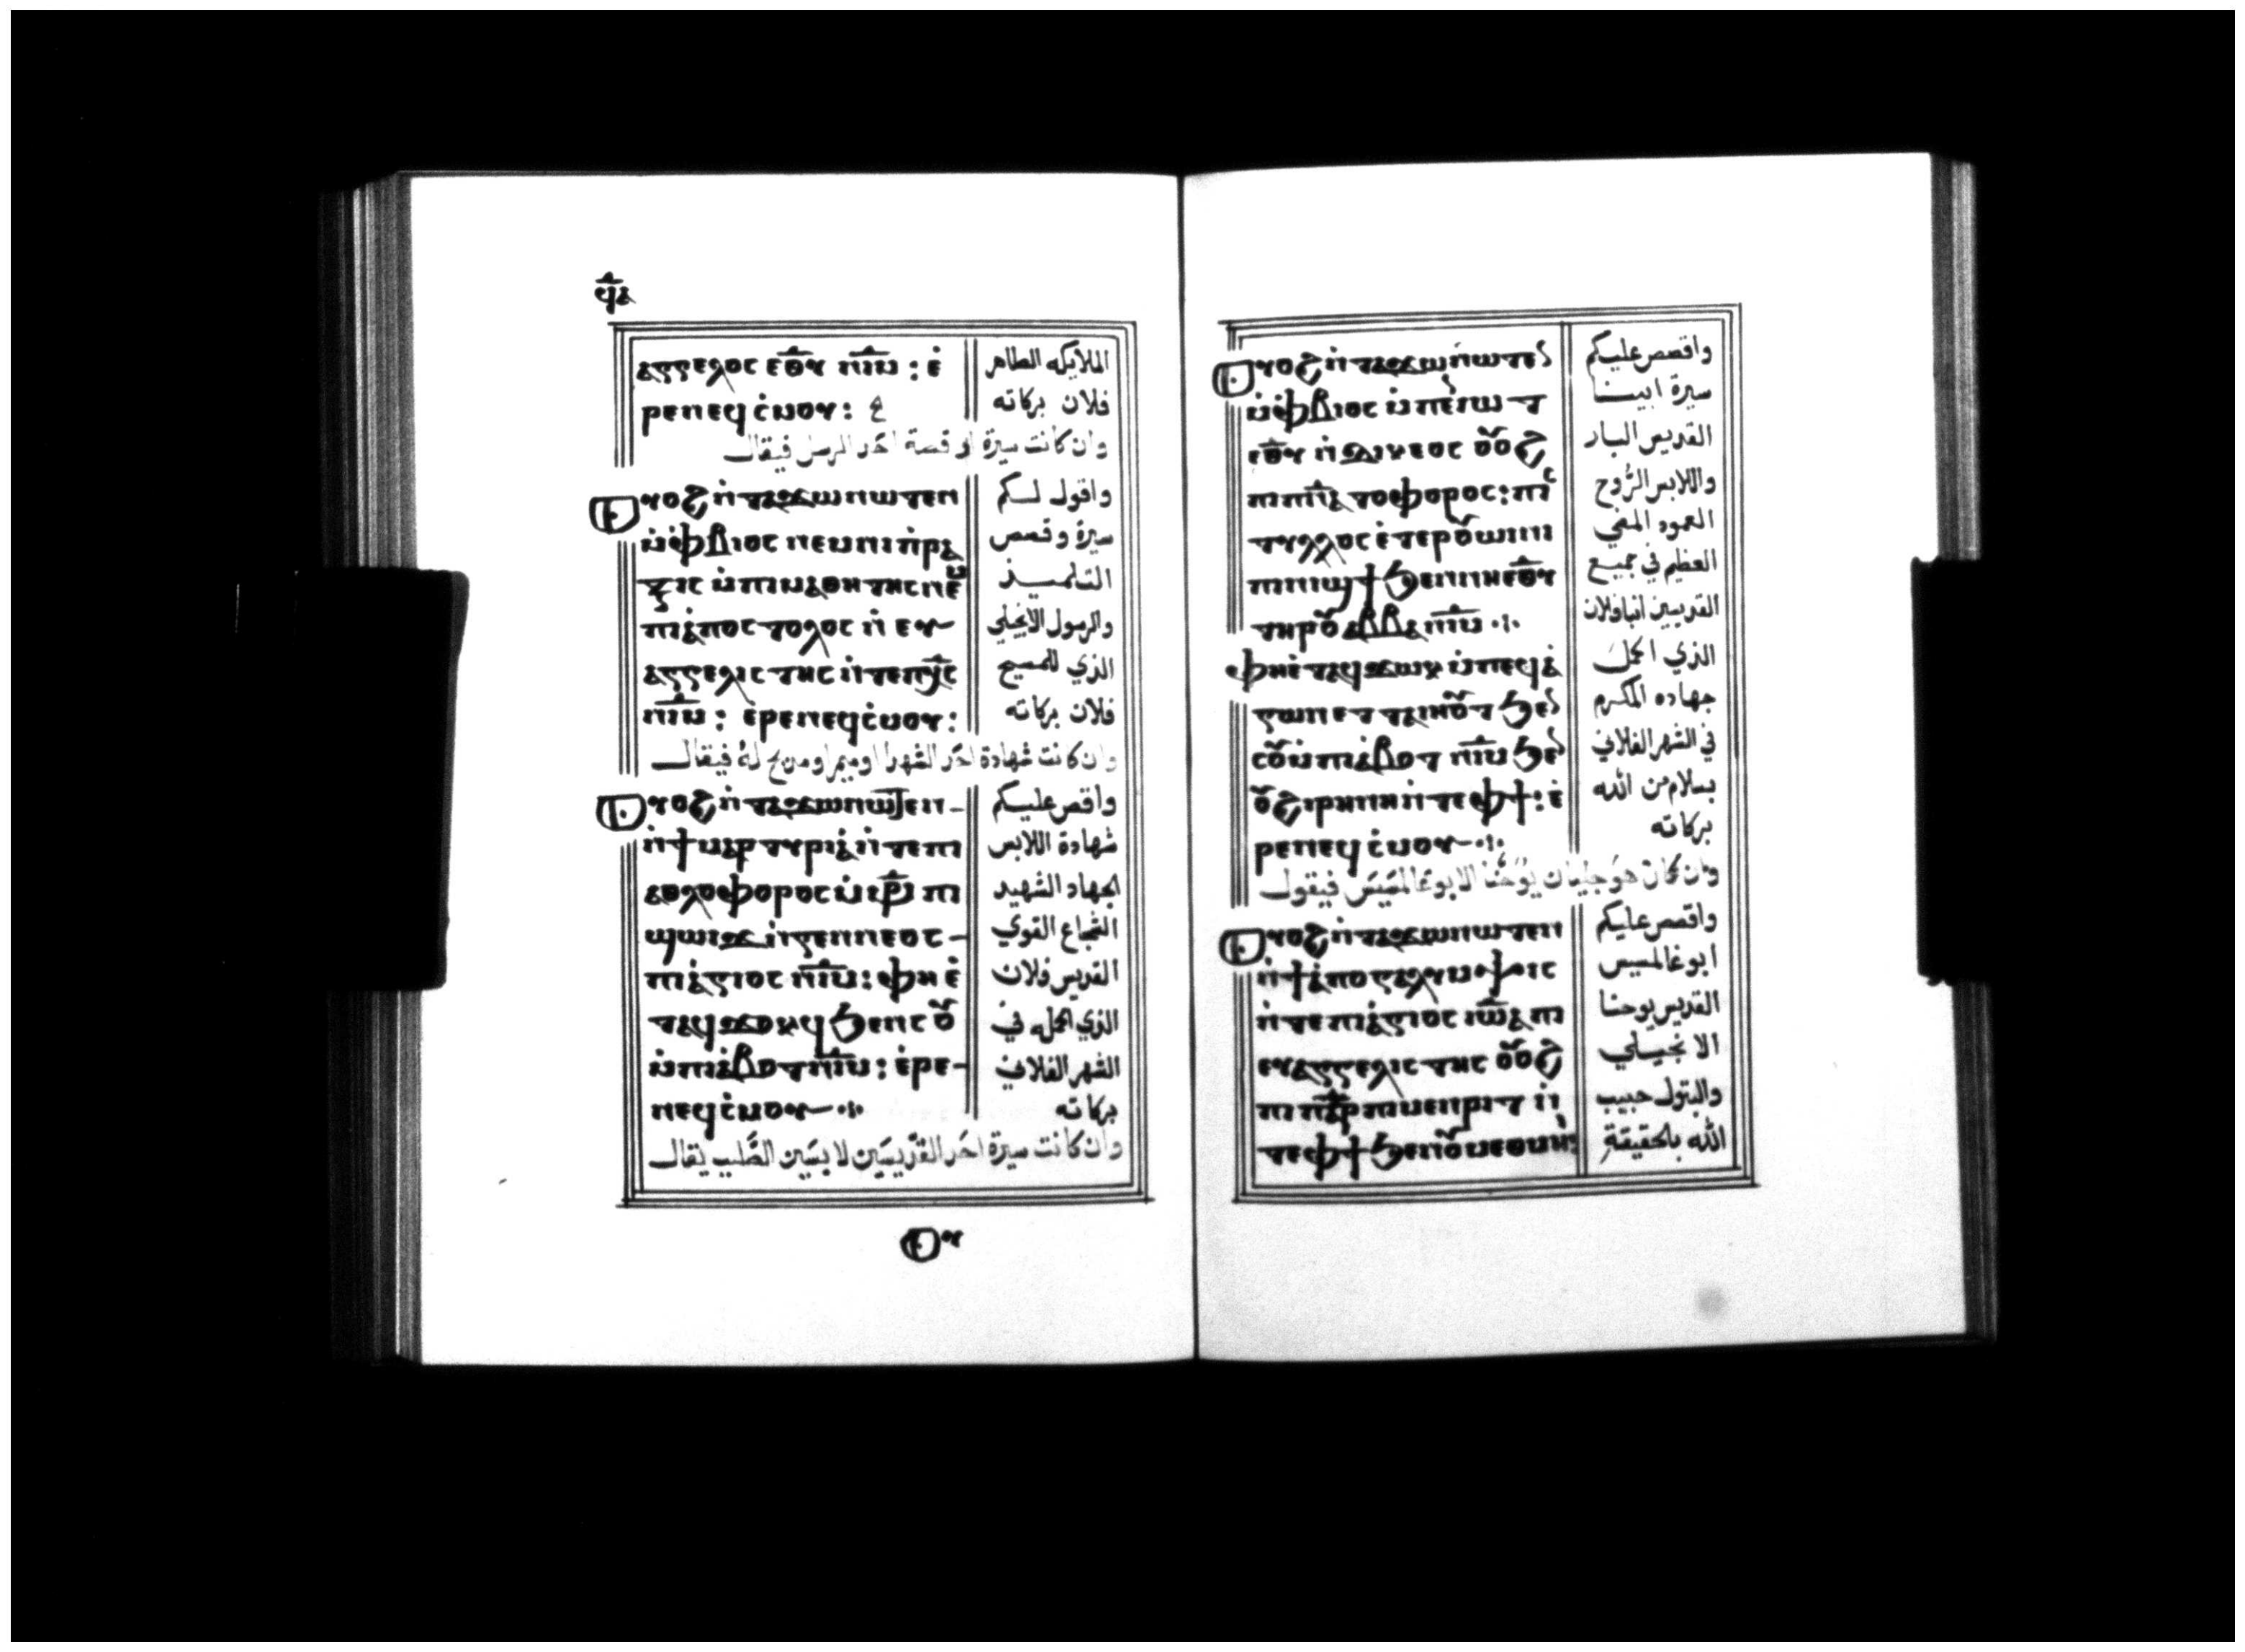 ⲁⲅⲅⲉⲗⲟⲥ ⲉⲑ̅ⲩ ⲛⲓ̅ⲙ : ⲉ̀ الملايكه الطاهر
ⲣⲉⲡⲉϥⲥ̀ⲙⲟⲩ : فلان بركاته
وان كانت سيرة او قصة احد الرسل فيقال
ⲟⲩⲟϩ ⲛ̀ⲧⲁϫⲱ ⲛⲱⲧⲉⲛ واقول لكم
ⲙ̀ⲫ̀ⲃⲓⲟⲥ ⲛⲉⲙ ⲡⲓⲡ̀ⲣⲁ سيرة وقصص
ⲝⲓⲥ ⲙ̀ⲡⲓⲙⲁⲑⲏⲧⲏⲥ ⲛⲉⲙ التلميذ
ⲡⲓⲁ̀ⲡⲟⲥⲧⲟⲗⲟⲥ ⲛ̀ⲉⲩ والرسول الانجيلي
ⲁⲅⲅⲉⲗⲓⲥⲧⲏⲥ ⲛ̀ⲧⲉ ⲡⲭ̅ⲥ الذي للمسيح
ⲛⲓ̅ⲙ : ⲉ̀ⲣⲉⲡⲉϥⲥ̀ⲙⲟⲩ : فلان بركاته
وان كانت شهادة احد الشهدا او ميمر او مديح له فيقال
ⲟⲩⲟϩ ⲛ̀ⲧⲁϫⲱ ⲛⲱⲧⲉⲛ واقص عليكم
ⲛ̀ϯⲙⲁⲣⲧⲩⲣⲓⲁ̀ ⲛ̀ⲧⲉ ⲡⲓ شهادة اللابس
ⲁⲑⲗⲟⲫⲟⲣⲟⲥ ⲙ̀ⲙⲁⲣ ⲡⲓ الجهاد الشهيد
ϣⲱⲓϫ ⲛ̀ⲅⲉⲛⲛⲉⲟⲥ الشجاع القوي
ⲡⲓⲁ̀ⲅⲓⲟⲥ ⲛⲓ̅ⲙ : ⲫⲏ ⲉ̀ القديس فلان
ⲧⲁϥϫⲟⲕϥ ϧⲉⲛ ⲥⲟⲩ الذي اكمله في
ⲙ̀ⲡⲓⲁ̀ⲃⲟⲧ ⲛⲓ̅ⲙ : ⲉ̀ⲣⲉ الشهر الفلاني
ⲡⲉϥⲥ̀ⲙⲟⲩ بركاته
وان كانت سيرة احد القديسين لابسين الصليب يقال
ⲟⲩⲟϩ
ⲟⲩⲟϩ ⲛ̀ⲧⲁϫⲱ ⲛⲱⲧⲉⲛ واقصص عليكم
ⲙ̀ⲫ̀ⲃⲓⲟⲥ ⲙ̀ⲡⲉⲛⲓⲱⲧ سيرة ابينا
ⲉⲑ̅ⲩ ⲛ̀ⲇⲓⲕⲉⲟⲥ ⲟⲩⲟϩ القديس البار
ⲙ̀ⲡ̅ⲛ̅ⲁ̅ⲧⲟⲫⲟⲣⲟⲥ : ⲡⲓⲥ̀ واللابس الروح
ⲧⲩⲗⲗⲟⲥ ⲉ̀ⲧⲉⲣⲟⲩⲱⲓⲛⲓ العمود المضي
ⲡⲓⲛⲓϣϯ ϧⲉⲛ ⲛⲏⲉⲑ̅ⲩ العظيم في جميع
ⲧⲏⲣⲟⲩ ⲁⲃⲃⲁ ⲛⲓ̅ⲙ القديسين انبا فلان
ⲫⲏ ⲉ̀ⲧⲁϥϫⲱⲕ ⲙ̀ⲡⲉϥⲁ̀ الذي اكمل
ⲅⲱⲛ ⲉⲧⲧⲁⲓⲏⲟⲩⲧ ϧⲉⲛ جهاده المكرم
ⲥⲟⲩ ⲙ̀ⲡⲓⲁ̀ⲃⲟⲧ ⲛⲓ̅ⲙ ϧⲉⲛ في الشهر الفلاني
ⲟⲩϩⲓⲣⲏⲛⲏ ⲛ̀ⲧⲉ ⲫϯ : ⲉ̀ بسلام من الله
ⲣⲉⲡⲉϥⲥ̀ⲙⲟⲩ بركاته
وان كان هو جليان يوحنا الابوغالمسيس فيقول
ⲟⲩⲟϩ ⲛ̀ⲧⲁϫⲱ ⲛⲱⲧⲉⲛ واقصص عليكم
ⲛ̀ϯⲁ̀ⲡⲟⲅⲁⲗⲩⲙⲯⲓⲥ ابوغالمسيس
ⲛ̀ⲧⲉ ⲡⲓⲁ̀ⲅⲓⲟⲥ ⲓⲱⲁ ⲡⲓ القديس يوحنا
ⲉⲩⲁⲅⲅⲉⲗⲓⲥⲧⲏⲥ ⲟⲩⲟϩ الانجيلي
والبتول حبيب
الله بالحقيقة